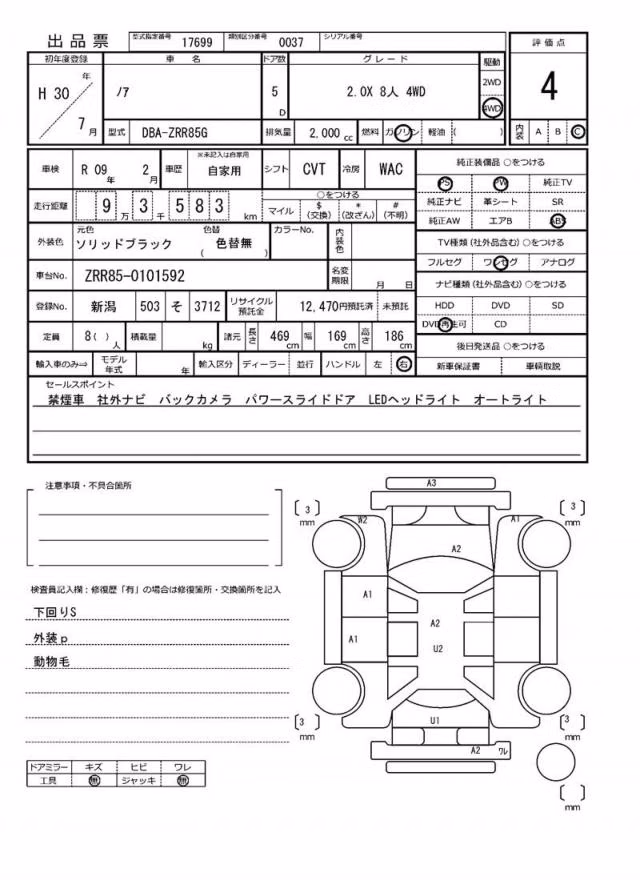 出品票 型式指定番号 17699 類別区分番号 0037 シリアル番号
評価点
4
内装 A B C
初年度登録 車名 ドア数 グレード 駆動
H 30年 7月 ノア 5D 2.0X 8人 4WD 2WD 4WD
型式 DBA-ZRR85G 排気量 2,000cc 燃料 ガソリン 軽油 ( )
車検 R 09年 2月 車歴 ※未記入は自家用 自家用 シフト CVT 冷房 WAC
走行距離 9万3千583km ○をつける
マイル $(交換) *(改ざん) #(不明)
外装色 元色 ソリッドブラック 色替 (色替無) カラーNo. 内装色
車台No. ZRR85-0101592 名変期限 月 日
登録No. 新潟 503 そ 3712 リサイクル預託金 12,470円預託済 未預託
定員 8( )人 積載量 kg 諸元 長さ 469cm 幅 169cm 高さ 186cm
輸入車のみ⇒ モデル年式 年 輸入区分 ディーラー 並行 ハンドル 左 右
純正装備品 ○をつける
PS PW 純正TV
純正ナビ 革シート SR
純正AW エアB ABS
TV種類(社外品含む)○をつける
フルセグ ワンセグ アナログ
ナビ種類(社外品含む)○をつける
HDD DVD SD
DVD再生可 CD
後日発送品 ○をつける
新車保証書 車輌取説
セールスポイント
禁煙車 社外ナビ バックカメラ パワースライドドア LEDヘッドライト オートライト
注意事項・不具合箇所
検査員記入欄:修復歴「有」の場合は修復箇所・交換箇所を記入
下回りS
外装p
動物毛
ドアミラー キズ ヒビ ワレ
工具 無 ジャッキ 無
A3
[3]mm [3]mm
W2 A1
A2
A1
A2
A1
U2
U1
[3]mm [3]mm
A2 ワレ
[ ]mm